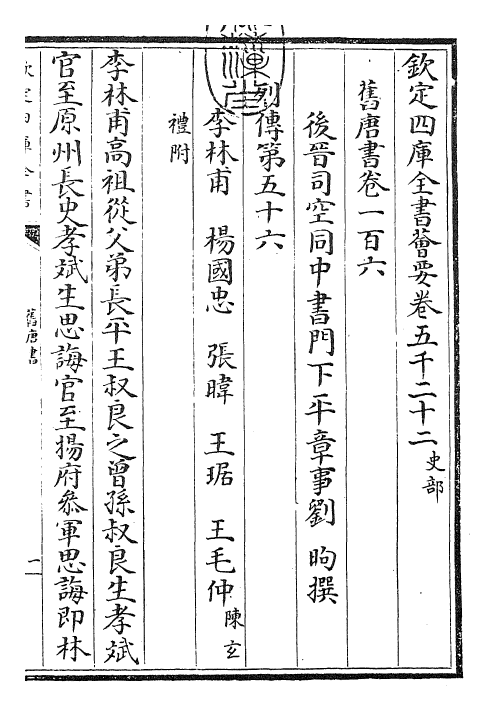 欽定四庫全書薈要卷五千二十二史部
舊唐書卷一百六
後晉司空同中書門下平章事劉昫撰
列傳第五十六
李林甫 楊國忠 張暐 王琚 王毛仲陳玄
禮附
李林甫高祖從父弟長平王叔良之曾孫叔良生孝斌
官至原州長史孝斌生思誨官至揚府叅軍思誨即林
欽定四庫全書
舊唐書
一